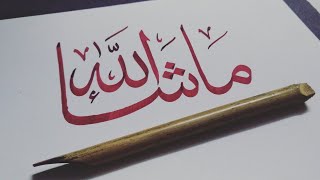 مَا شَاءَ اللَّه